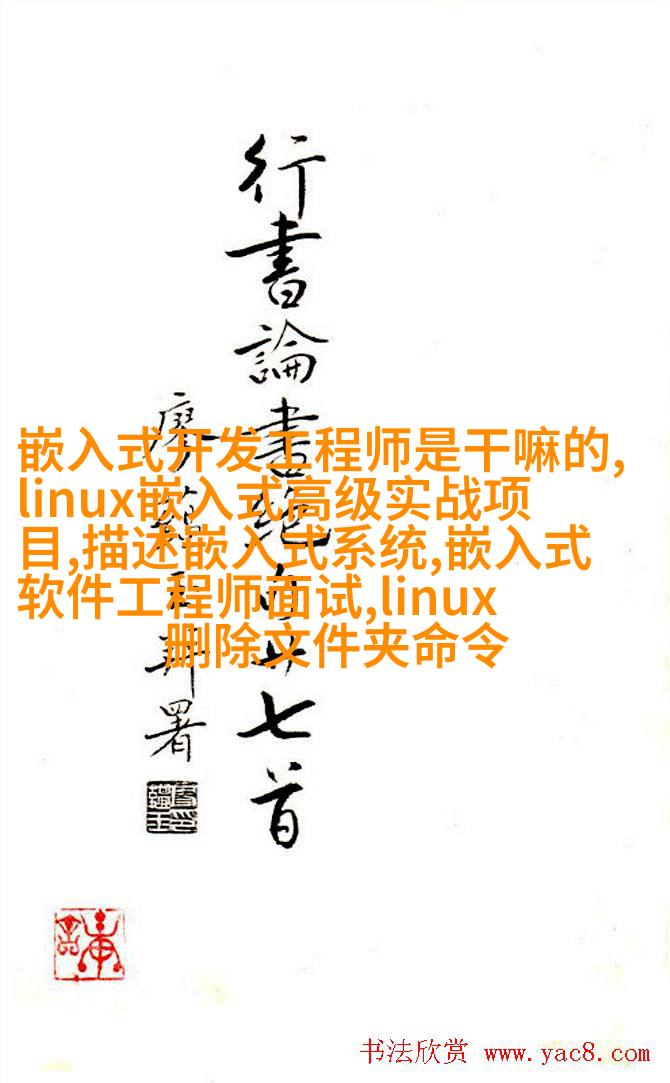 行書論書絕句廿七首
署
嵌入式开发工程师是干嘛的,
linux嵌入式高级实战项
目,描述嵌入式系统,嵌入式
软件工程师面试,linux
删除文件夹命令
书法欣赏 www.yac8.com